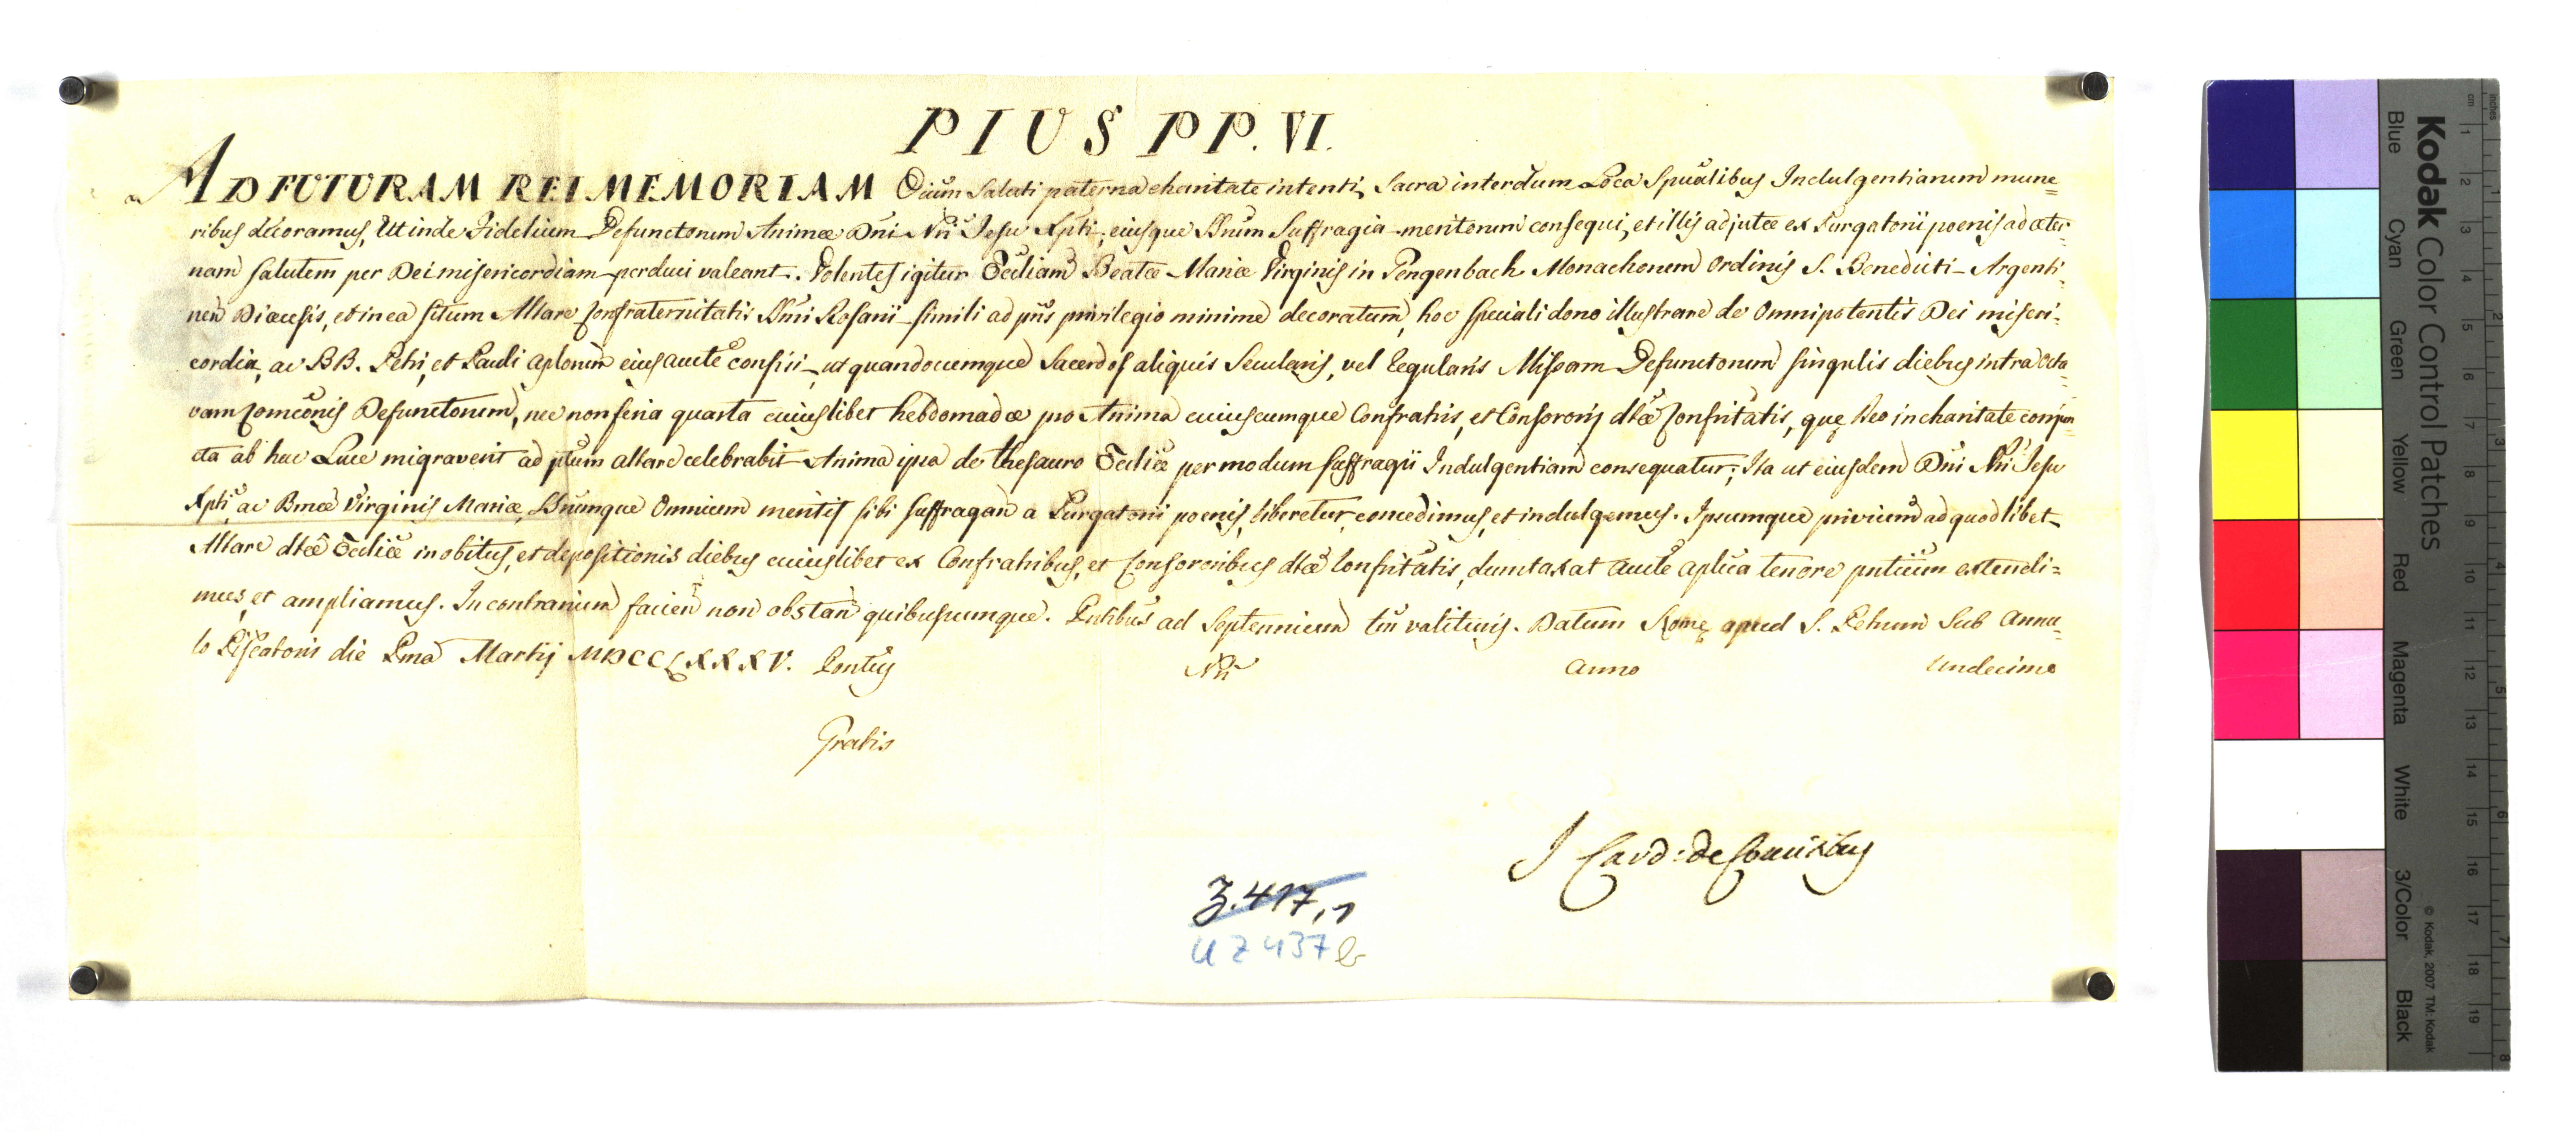 PIUS PP. VI.
AD FUTURAM REI MEMORIAM Oium Saluti paterna charitate intenti, Sacra interdum Loca Spūalibus Indulgentiarum mune=
ribus decoramus, Ut inde Fidelium Defunctorum Animæ Dñi Nri Jesu Xpti, eiusque SSrum Suffragia meritorum consequi, et illis adjutæ ex Purgatorii poenis ad æter=
nam salutem per Dei misericordiam perduci valeant. Volentes igitur Eccliam Beatæ Mariæ Virginis in Gengenbach Monachorum Ordinis S. Benedicti Argenti=
nen Diœcesis, et in ea situm Altare Confraternitatis SSmi Rosarii simili ad pñs privilegio minime decoratum, hoc speciali dono illustrare de Omnipotentis Dei miseri=
cordia, ac BB. Petri, et Pauli Aplorum eius aucte confisi, ut quandocumque Sacerdos aliquis Secularis, vel Regularis Missam Defunctorum singulis diebus intra Octa=
vam Comõnis Defunctorum, nec non feria quarta cuiuslibet hebdomadæ pro Anima cuiuscumque Confratris, et Consororis dtæ Confritatis, quę Deo in charitate conjun=
cta ab hac Luce migraverit ad ptum altare celebrabit Anima ipsa de thesauro Eccliæ per modum suffragii Indulgentiam consequatur; Ita ut eiusdem Dñi Nri Jesu
Xpti ac Bmæ Virginis Mariæ, SSrumque Omnium meritis sibi suffragañ a Purgatorii poenis liberetur, concedimus, et indulgemus. Ipsumque privium ad quodlibet
Altare dtæ Eccliæ in obitus, et depositionis diebus cuiuslibet ex Confratribus, et Consororibus dtæ Confritatis, dumtaxat aucte aplica tenore pntium extendi=
mus, et ampliamus. In contrarium facieñ non obstañ quibuscumque. Pntibus ad Septennium tm valituris. Datum Romę apud S. Petrum Sub Annu=
lo Piscatoris die Pma Martij MDCCLXXXV. Pontus Nri Anno Undecimo
Gratis
J Card: de
Z. 417, 1
U Z 437 b
Kodak Color Control Patches
Blue Cyan Green Yellow Red Magenta White 3/Color Black
© Kodak, 2007 TM: Kodak
cm 1 2 3 4 5 6 7 8 9 10 11 12 13 14 15 16 17 18 19
inches 1 2 3 4 5 6 7 8